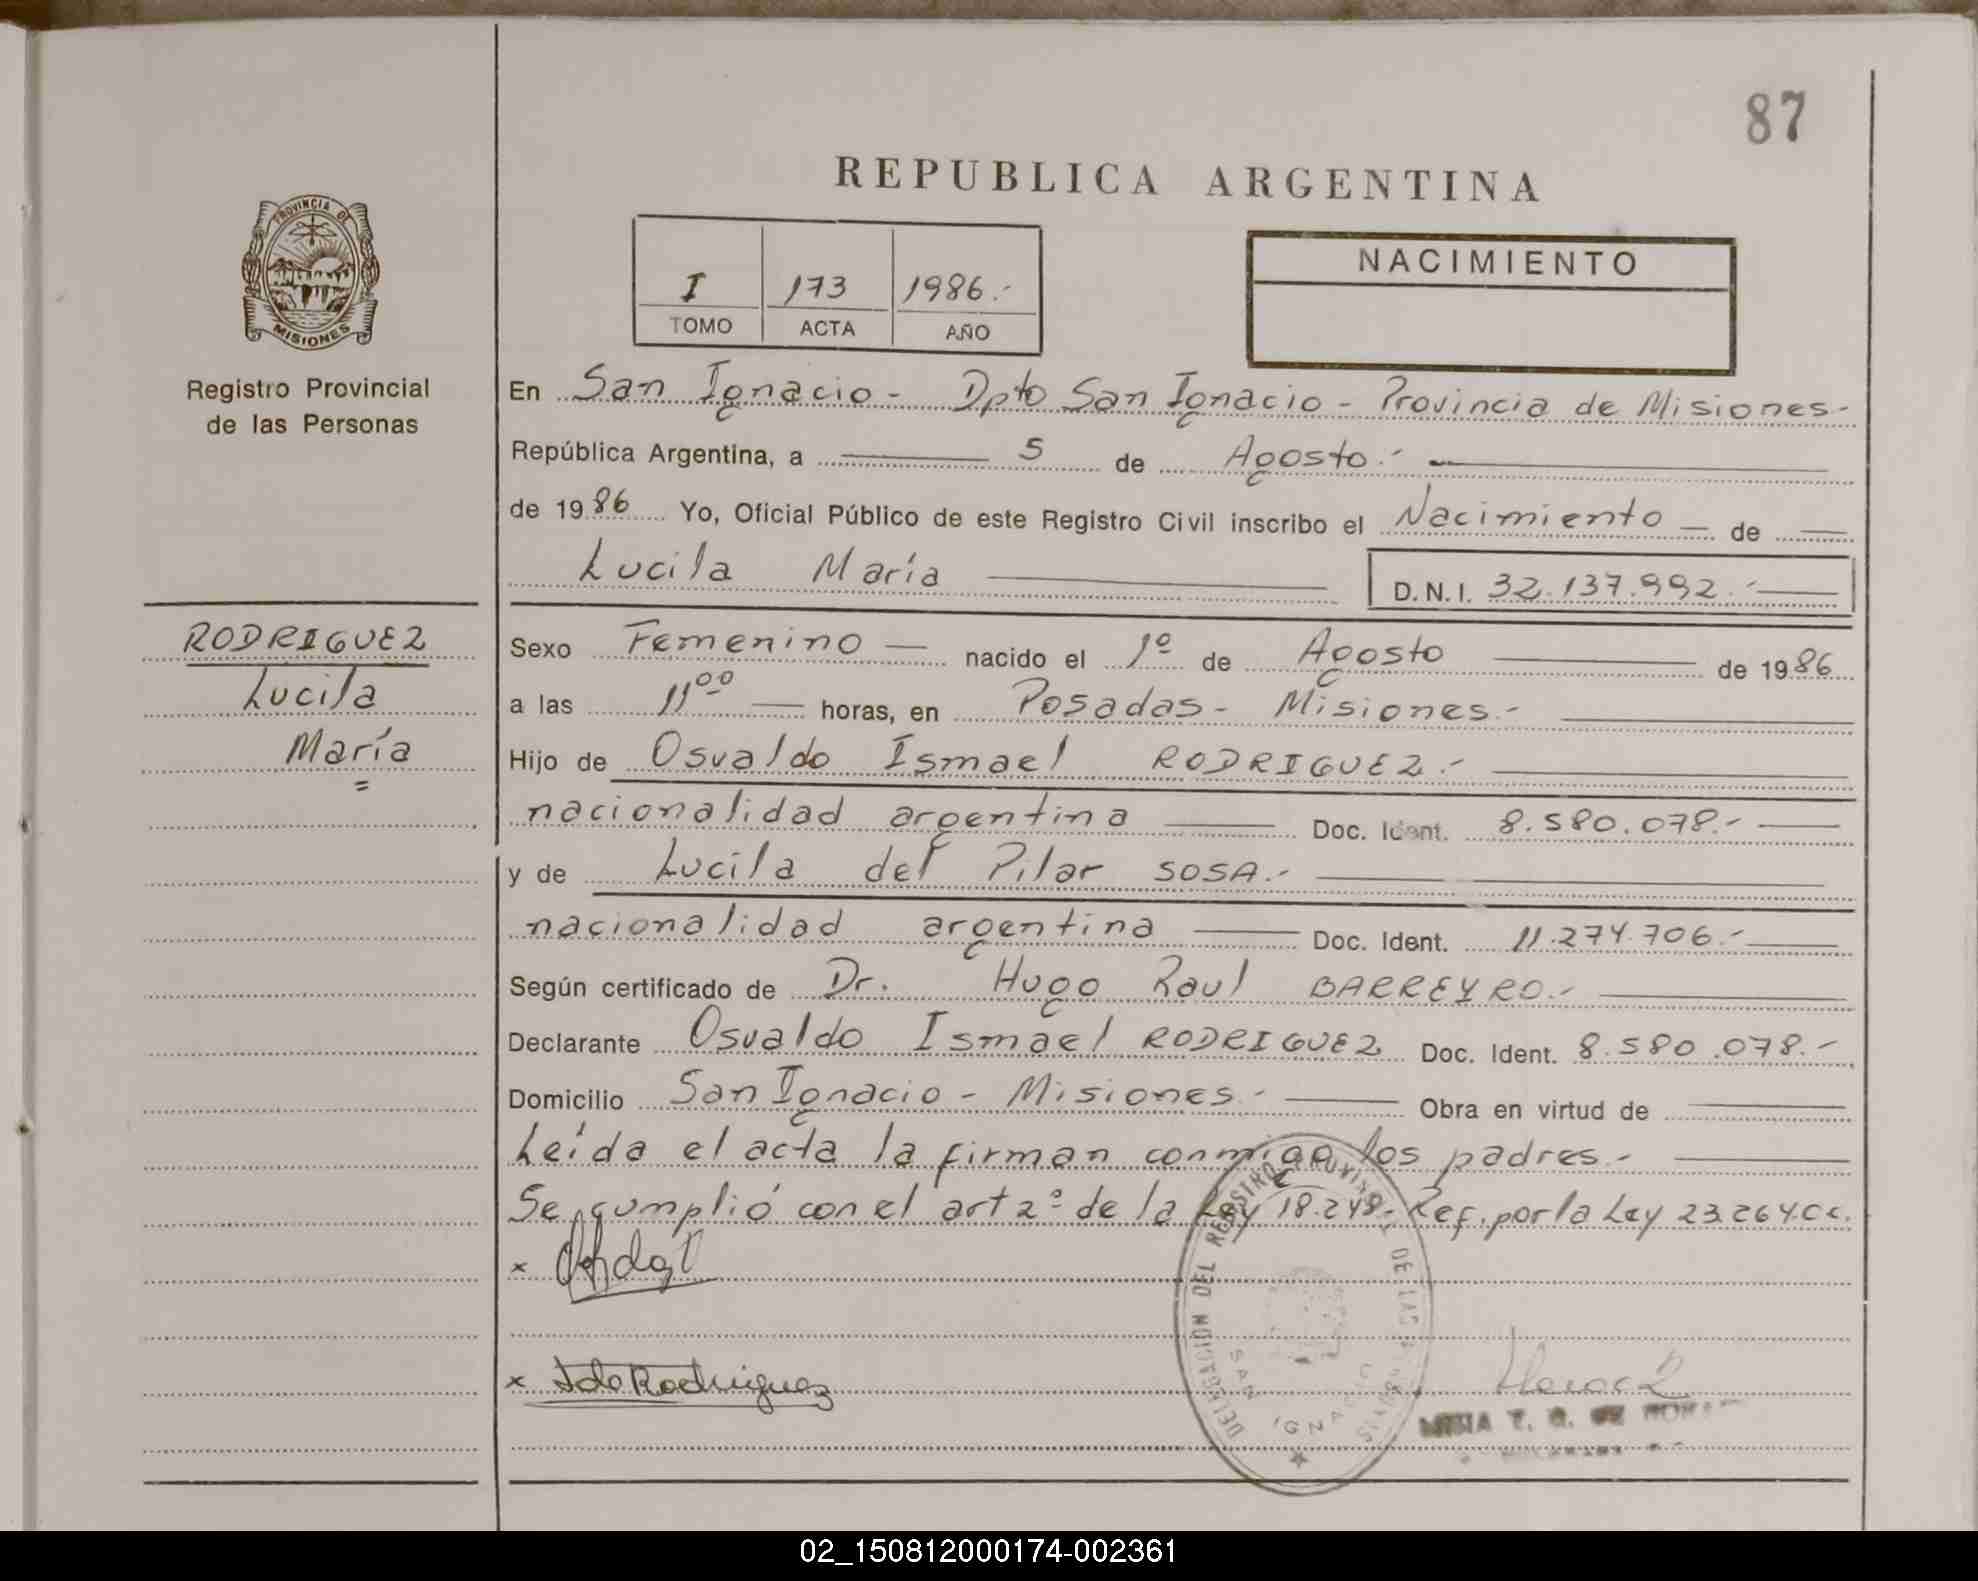 87
REPUBLICA ARGENTINA
PROVINCIA DE
MISIONES
Registro Provincial
de las Personas
I 173 1986.-
TOMO ACTA AÑO
NACIMIENTO
En San Ignacio - Dpto San Ignacio - Provincia de Misiones-
República Argentina, a 5 de Agosto.-
de 1986 Yo, Oficial Público de este Registro Civil inscribo el Nacimiento de
Lucila María D.N.I. 32.137.992.-
RODRIGUEZ
Lucila
María
Sexo Femenino nacido el 1º de Agosto de 1986
a las 11 00 horas, en Posadas- Misiones.-
Hijo de Osvaldo Ismael RODRIGUEZ.-
nacionalidad argentina Doc. Ident. 8.580.078.-
y de Lucila del Pilar SOSA.-
nacionalidad argentina Doc. Ident. 11.274.706.-
Según certificado de Dr. Hugo Raul BARREYRO.-
Declarante Osvaldo Ismael RODRIGUEZ Doc. Ident. 8.580.078.-
Domicilio San Ignacio - Misiones.- Obra en virtud de
Leída el acta la firman conmigo los padres.-
Se cumplió con el art 2º de la Ley 18.248- Ref. por la Ley 23.264.CC.
x
x Rodriguez
DELEGACION DEL REGISTRO PROVINCIAL DE LAS PERSONAS
SAN IGNACIO
02_150812000174-002361